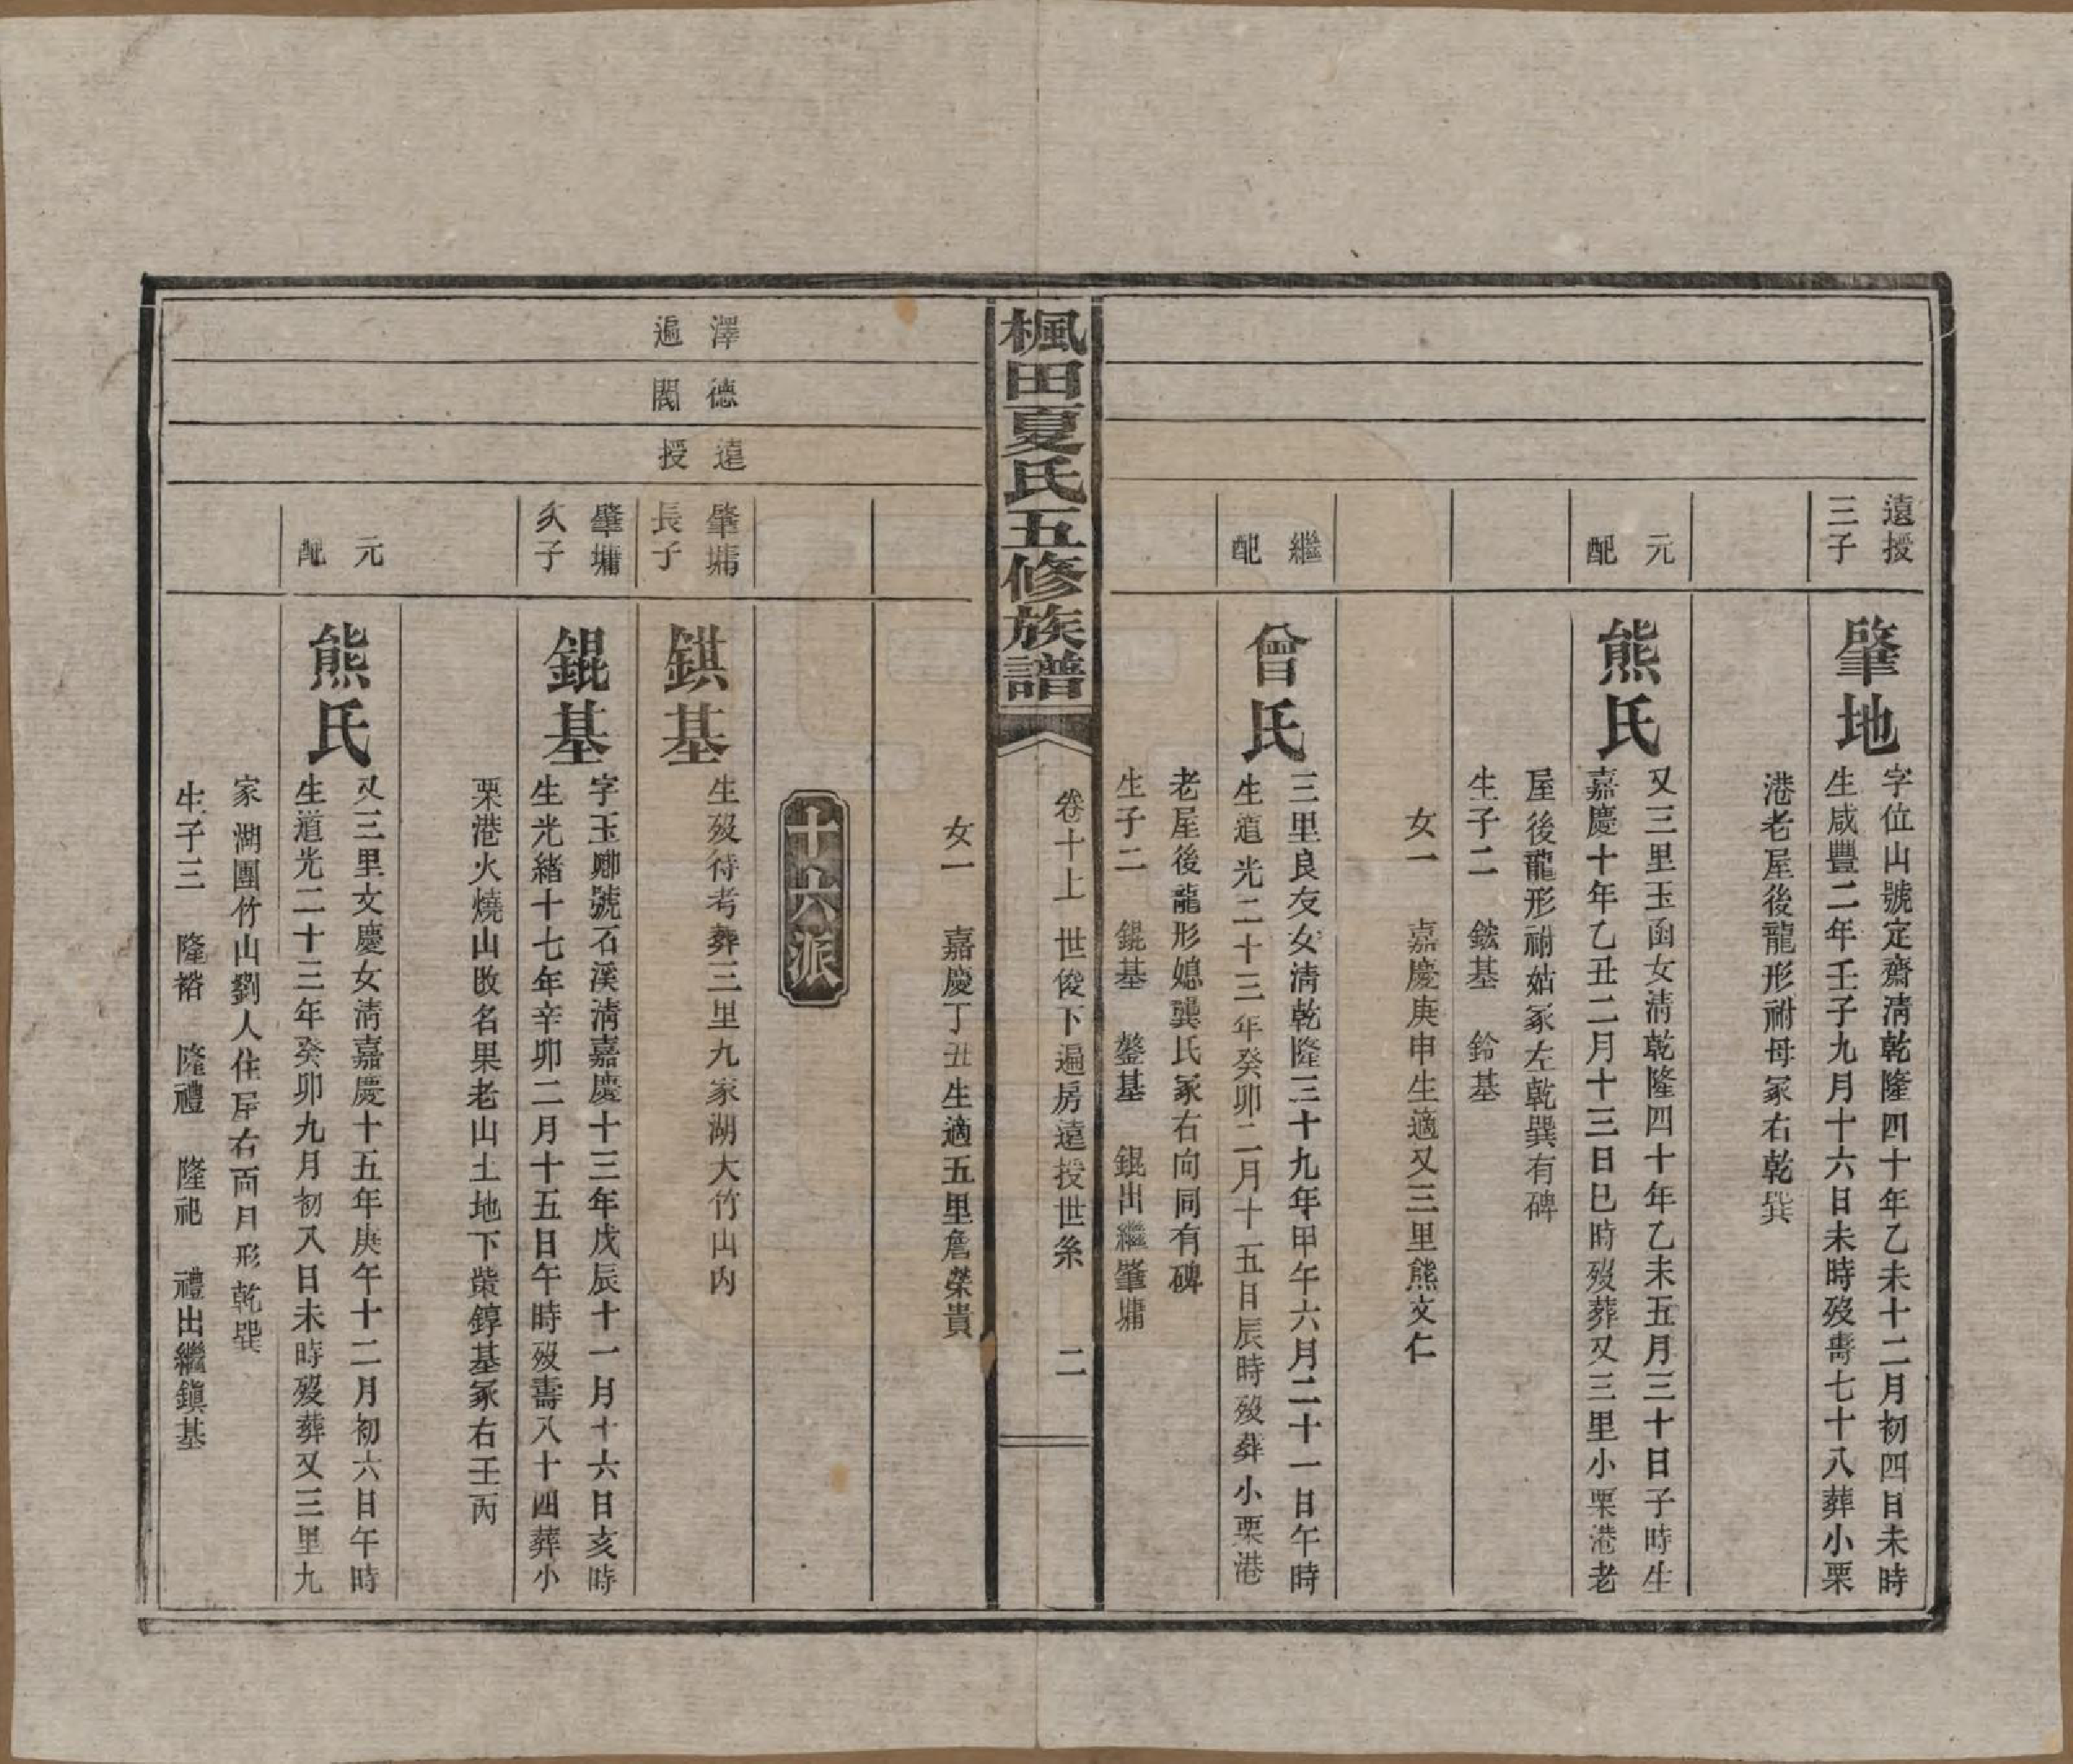 遠授
三子
肇地
字位山號定齋淸乾隆四十年乙未十二月初四日未時
生咸豐二年壬子九月十六日未時歿壽七十八葬小栗
港老屋後龍形祔母冢右乾巽
元
配
熊氏
又三里玉函女淸乾隆四十年乙未五月三十日子時生
嘉慶十年乙丑二月十三日巳時歿葬又三里小栗港老
屋後龍形祔姑冢左乾巽有碑
生子二 鉉基 鈴基
女一 嘉慶庚申生適又三里熊文仁
繼
配
曾氏
三里良友女淸乾隆三十九年甲午六月二十一日午時
生道光二十三年癸卯二月十五日辰時歿葬小栗港
老屋後龍形媳龔氏冢右向同有碑
生子二 錕基 鏊基 錕出繼肇墉
楓田夏氏五修族譜
卷十上 世俊下遍房遠授世系 二
女一 嘉慶丁丑生適五里詹榮貴
十六派
澤
遍
德
閥
遠
授
肇墉
長子
錤基
生歿待考葬三里九家湖大竹山內
肇墉
次子
錕基
字玉卿號石溪淸嘉慶十三年戊辰十一月十六日亥時
生光緖十七年辛卯二月十五日午時歿壽八十四葬小
栗港火燒山改名果老山土地下葉錞基冢右壬丙
元
配
熊氏
又三里文慶女淸嘉慶十五年庚午十二月初六日午時
生道光二十三年癸卯九月初八日未時歿葬又三里九
家湖團竹山劉人住屋右面月形乾巽
生子三 隆裕 隆禮 隆祀 禮出繼鎭基